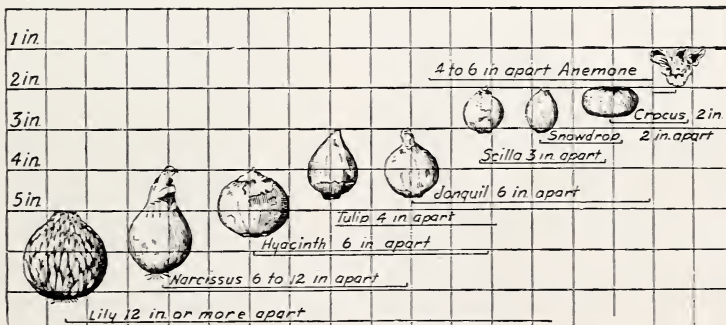 1 in.
2 in.
3 in.
4 in.
5 in.
4 to 6 in apart Anemone
Crocus, 2 in.
Snowdrop, 2 in. apart
Scilla 3 in apart
Jonquil 6 in apart
Tulip 4 in apart
Hyacinth 6 in apart
Narcissus 6 to 12 in apart
Lily 12 in or more apart